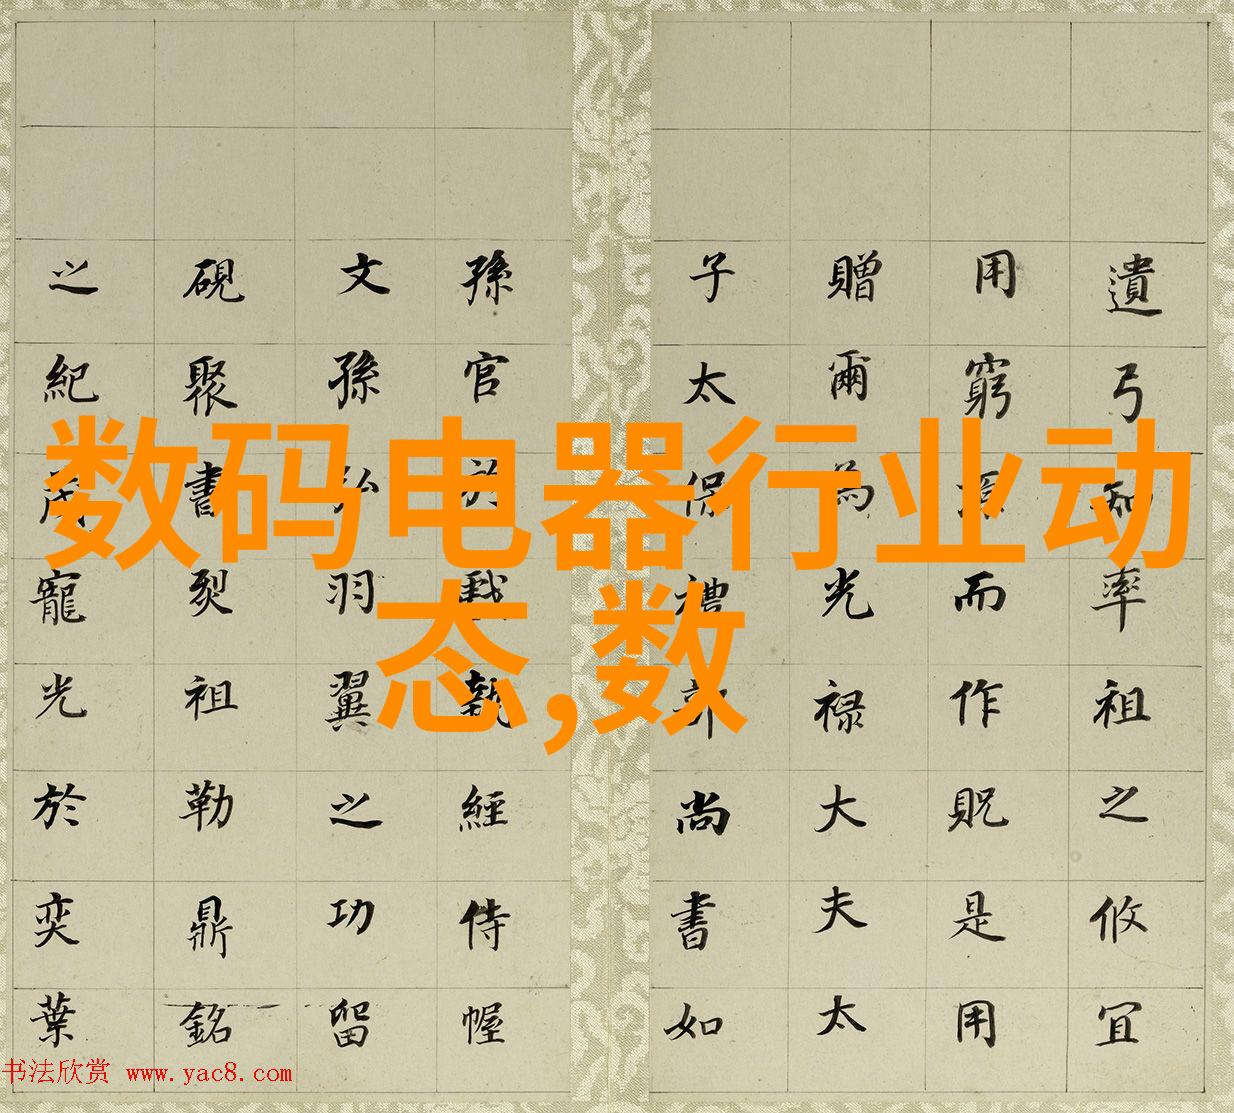 数码电器行业动
态,数
遺弓知率祖之攸冝
用窮而作貺是用
贈爾為光禄大夫太
子太保禮部尚書如
孫官於戲執經侍幄
文孫弘羽翼之功留
硯聚書裂祖勒鼎銘
之紀寵光於奕葉
书法欣赏 www.yac8.com